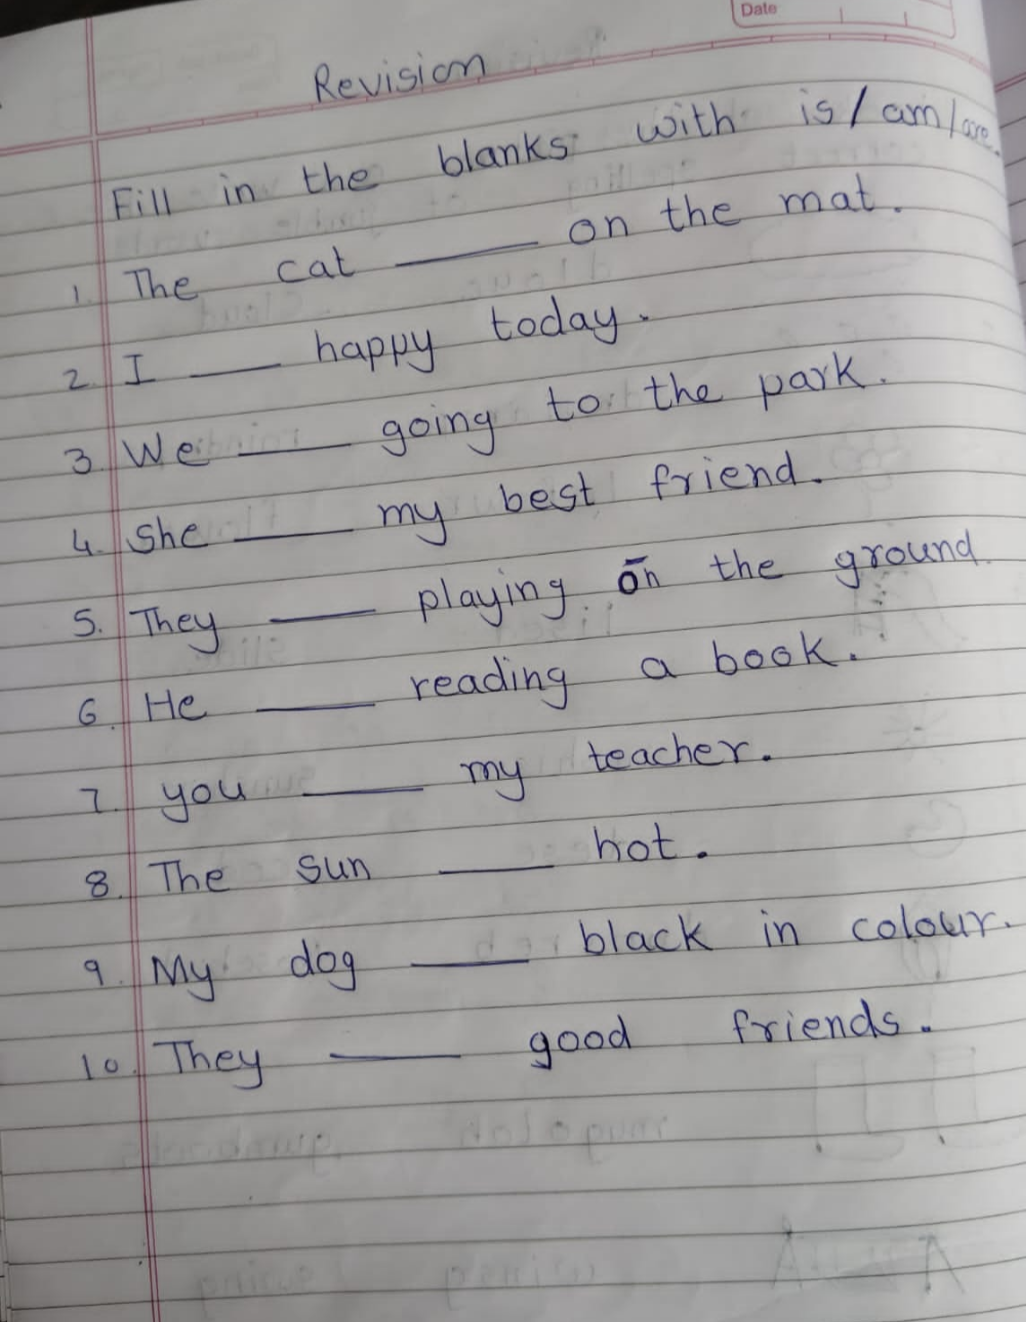 Date
Revision
Fill in the blanks with is/am/are.
1. The cat ______ on the mat.
2. I ______ happy today.
3. We ______ going to the park.
4. She ______ my best friend.
5. They ______ playing on the ground
6. He ______ reading a book.
7. you ______ my teacher.
8. The sun ______ hot.
9. My dog ______ black in colour.
10. They ______ good friends.